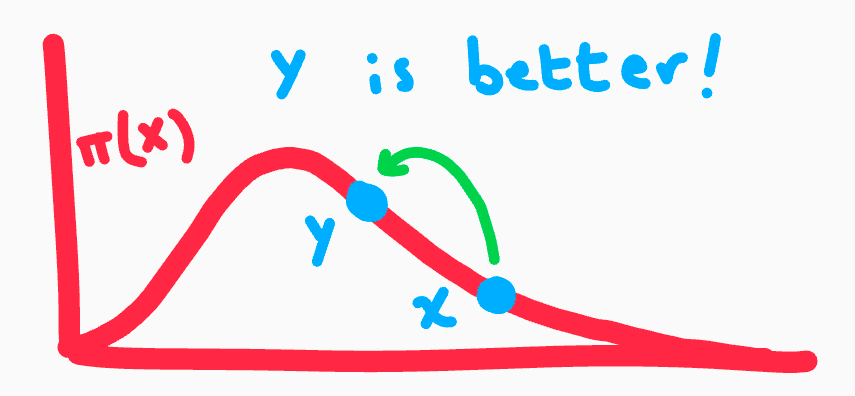 y is better!
π(x)
y
x